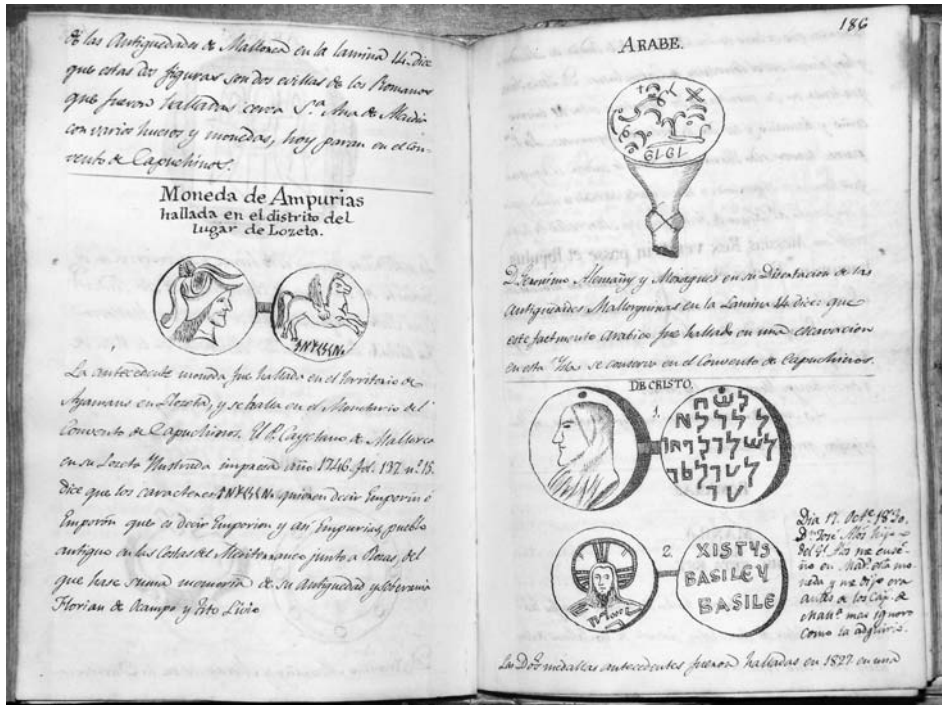 de las Antiguedades de Mallorca en la lamina 14. dice
que estas dos figuras son dos evillas de los Romanos
que fueron halladas cerca Sta. Ana de
con varios huesos y monedas, hoy paran en el con-
vento de Capuchinos.
Moneda de Ampurias
hallada en el distrito del
lugar de Lozeta.
La antecedente moneda fue hallada en el territorio de
Ayamans en Llozeta, y se halla en el Monetario del
Convento de Capuchinos. El P. Cayetano de Mallorca
en su Lozeta Illustrada impresa año 1746. fol. 137. nº. 15.
dice que los caracteres quieren decir Emporin ó
Emporon que es decir Emporion y asi Empurias, pueblo
antiguo en las Costas del Mediterraneo junto a Rosas, del
que hase suma memoria de su antiguedad y
Florian de Ocampo y Tito Livio
186
ARABE.
1919
D. Geronimo Alemañy y Moragues en su Disertacion de las
Antiguedades Mallorquinas en la Lamina 14. dice: que
este fragmento Arabico fue hallado en una escavacion
en esta Isla se conserva en el Convento de Capuchinos.
DE CRISTO.
1.
2.
XISTYS
BASILEY
BASILE
Dia 17. Octe. 1830.
Dn. José hijo
del me ense-
ño en esta mo-
neda y me dijo era
antes de los Cap. de
Malla. mas ignoro
como la adquirió.
Las Dos medallas antecedentes fueron halladas en 1827 en una